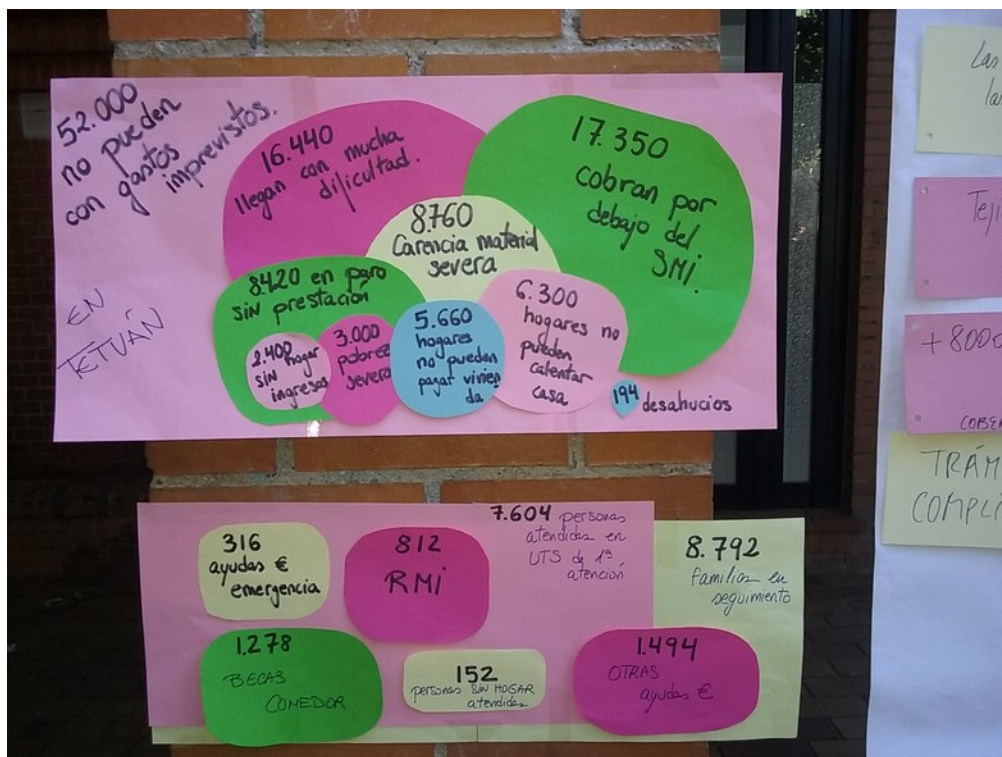 52.000
no pueden
con gastos
imprevistos.
EN
TETUÁN
16.440
llegan con mucha
dificultad.
17.350
cobran por
debajo del
SMI.
8.760
Carencia material
severa
8.420 en paro
sin prestación
2.400 hogar
SIN
ingresos
3.000
pobreza
severa
5.660
hogares
no pueden
pagar vivien
da
6.300
hogares no
pueden
calentar
casa
194 desahucios
316
ayudas €
emergencia
812
RMI
7.604 personas
atendidas en
UTS de 1ª
atención
8.792
familias en
seguimiento
1.278
BECAS
COMEDOR
152
personas SIN HOGAR
atendidas
1.494
OTRAS
ayudas €
Las
+ 8000
TRÁM
COMPL